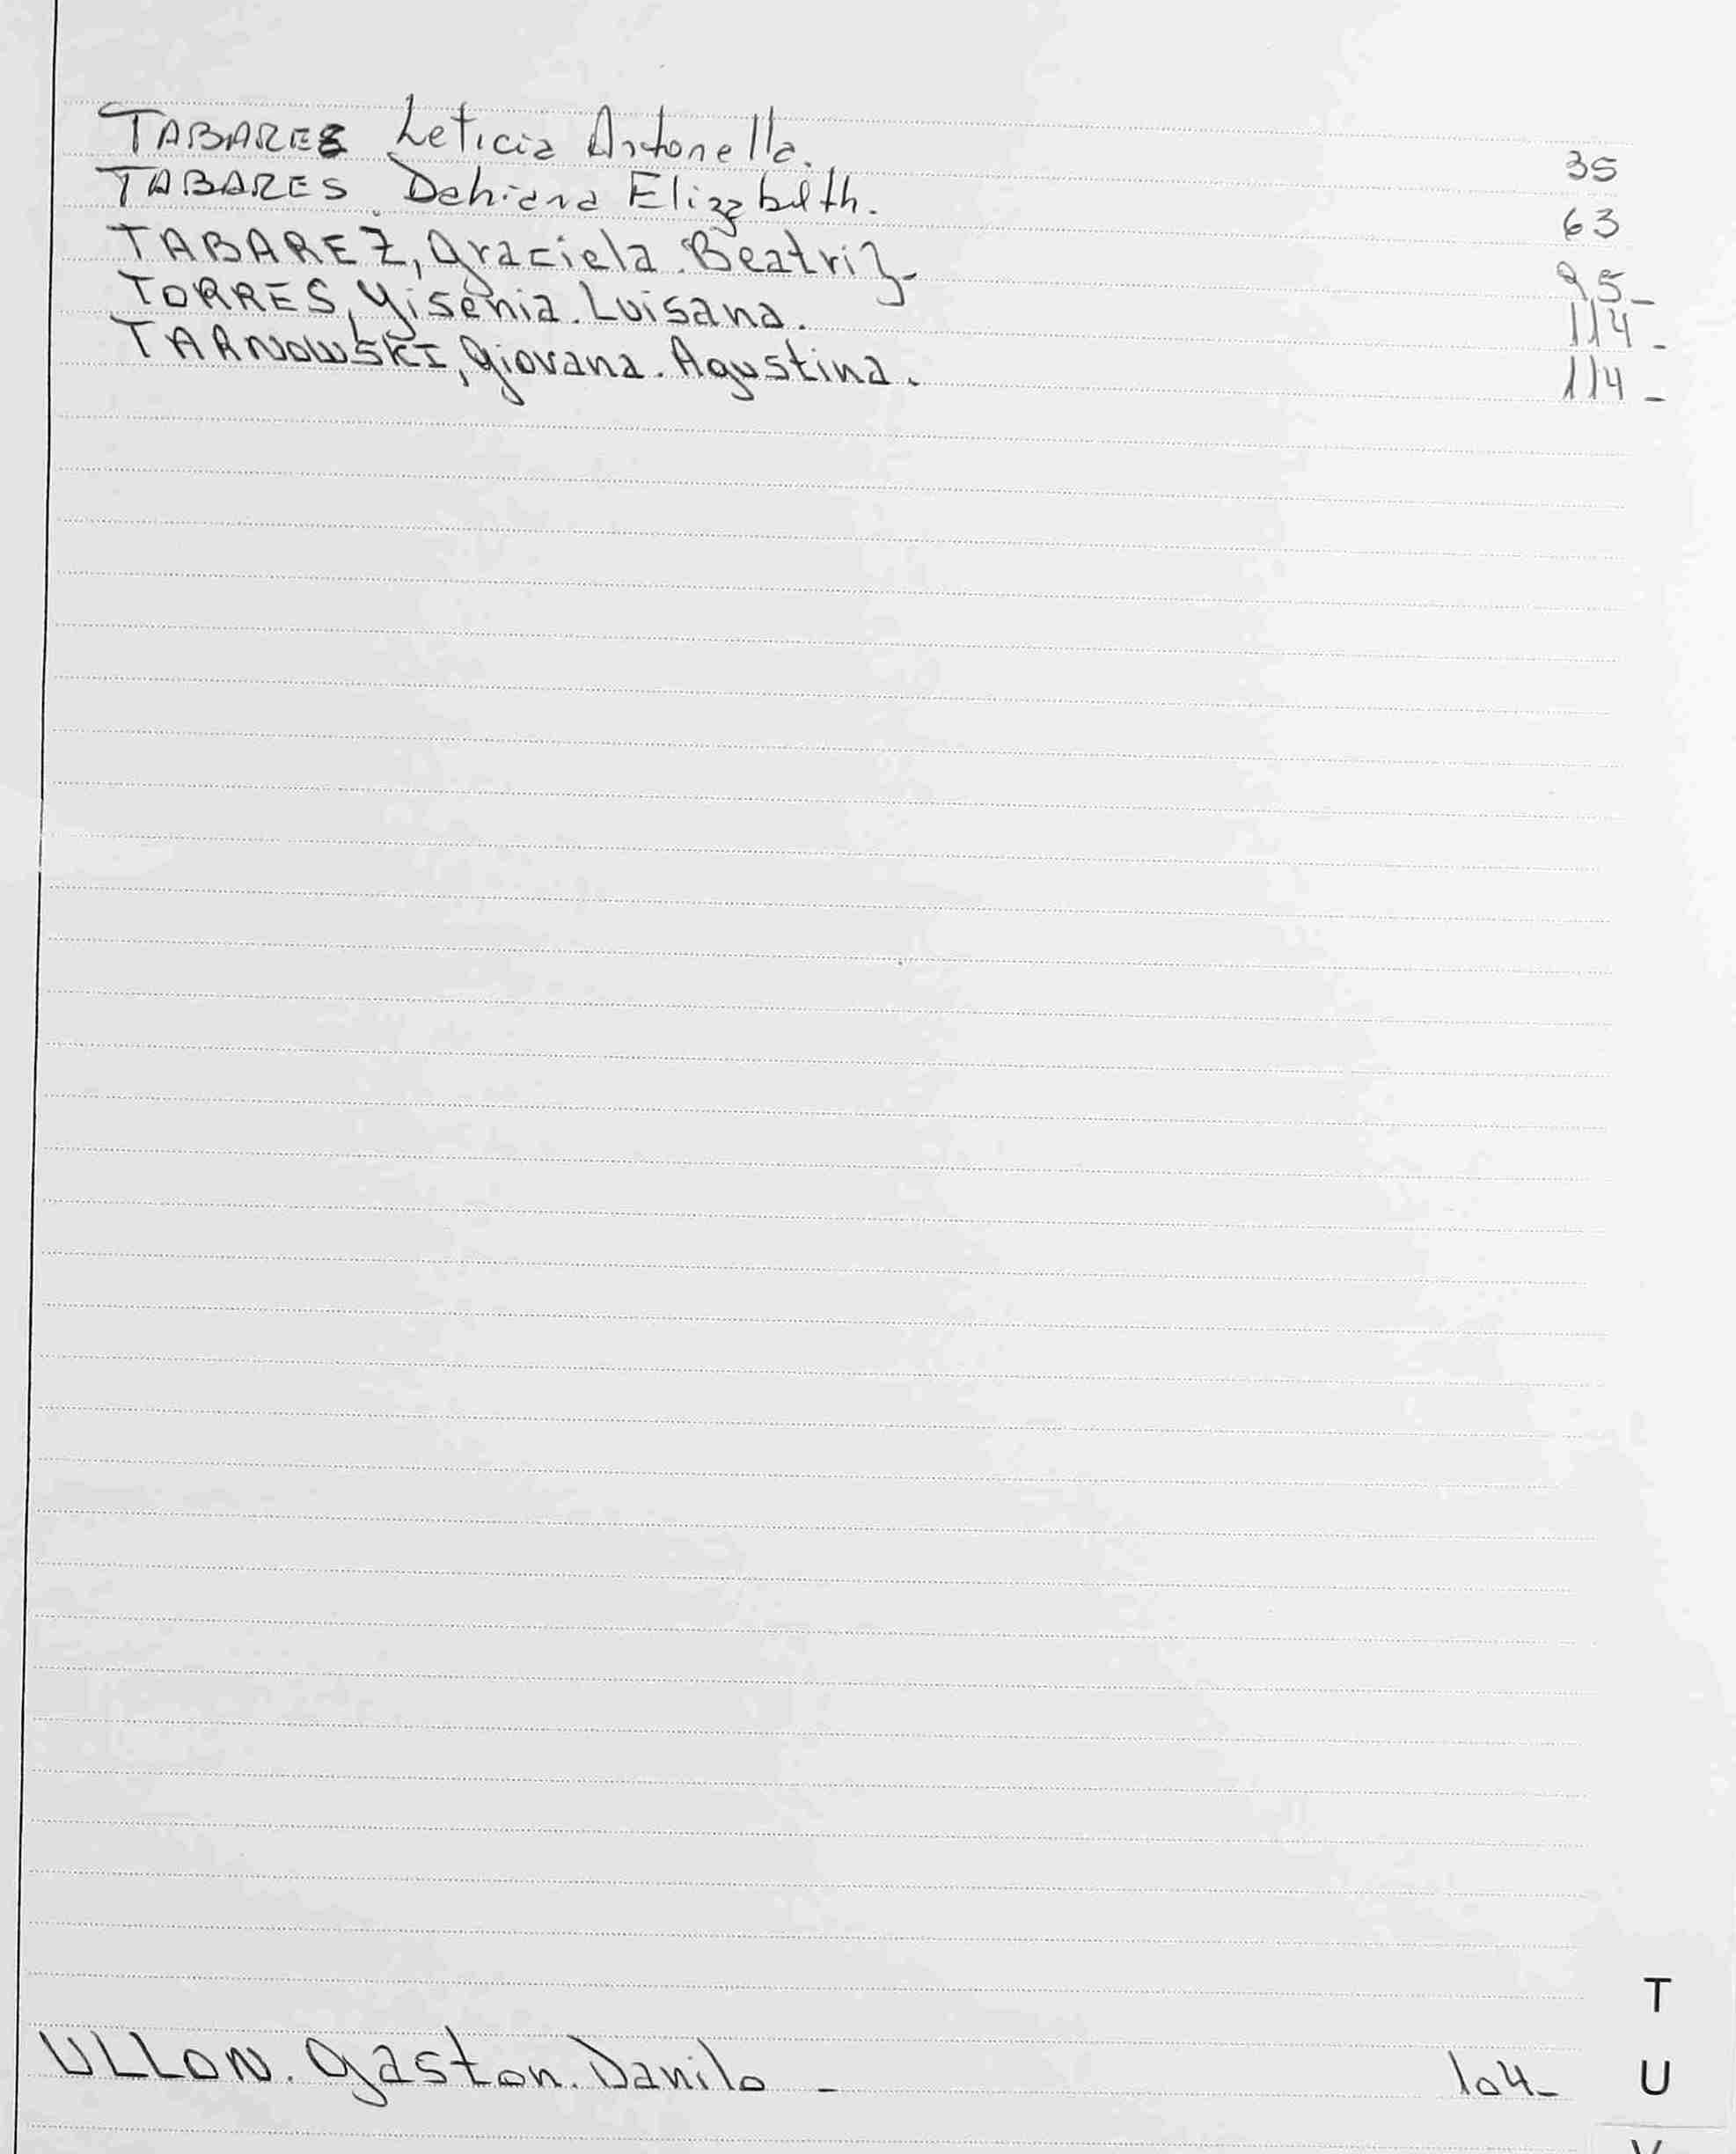 TABARES Leticia Antonella. 35
TABARES. Dahiana Elizabeth. 63
TABAREZ, Graciela. Beatriz- 95-
TORRES, Yisenia. Luisana. 114-
TARNOWSKI, Giovana. Agustina. 114-
T
ULLON. Gaston. Danilo - 104- U